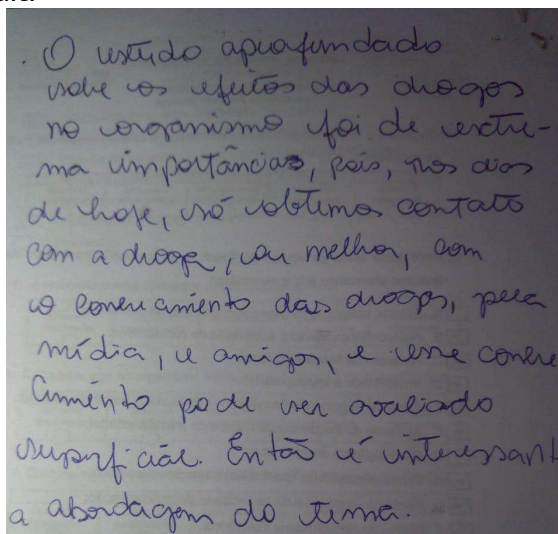 . O estudo aprofundado
sobre os efeitos das drogas
no organismo foi de extre-
ma importância, pois, nos dias
de hoje, só obtemos contato
com a droga, ou melhor, com
o conhecimento das drogas, pela
mídia, e amigos, e esse conhe
cimento pode ser avaliado
superficial. Então é interessant
a abordagem do tema.